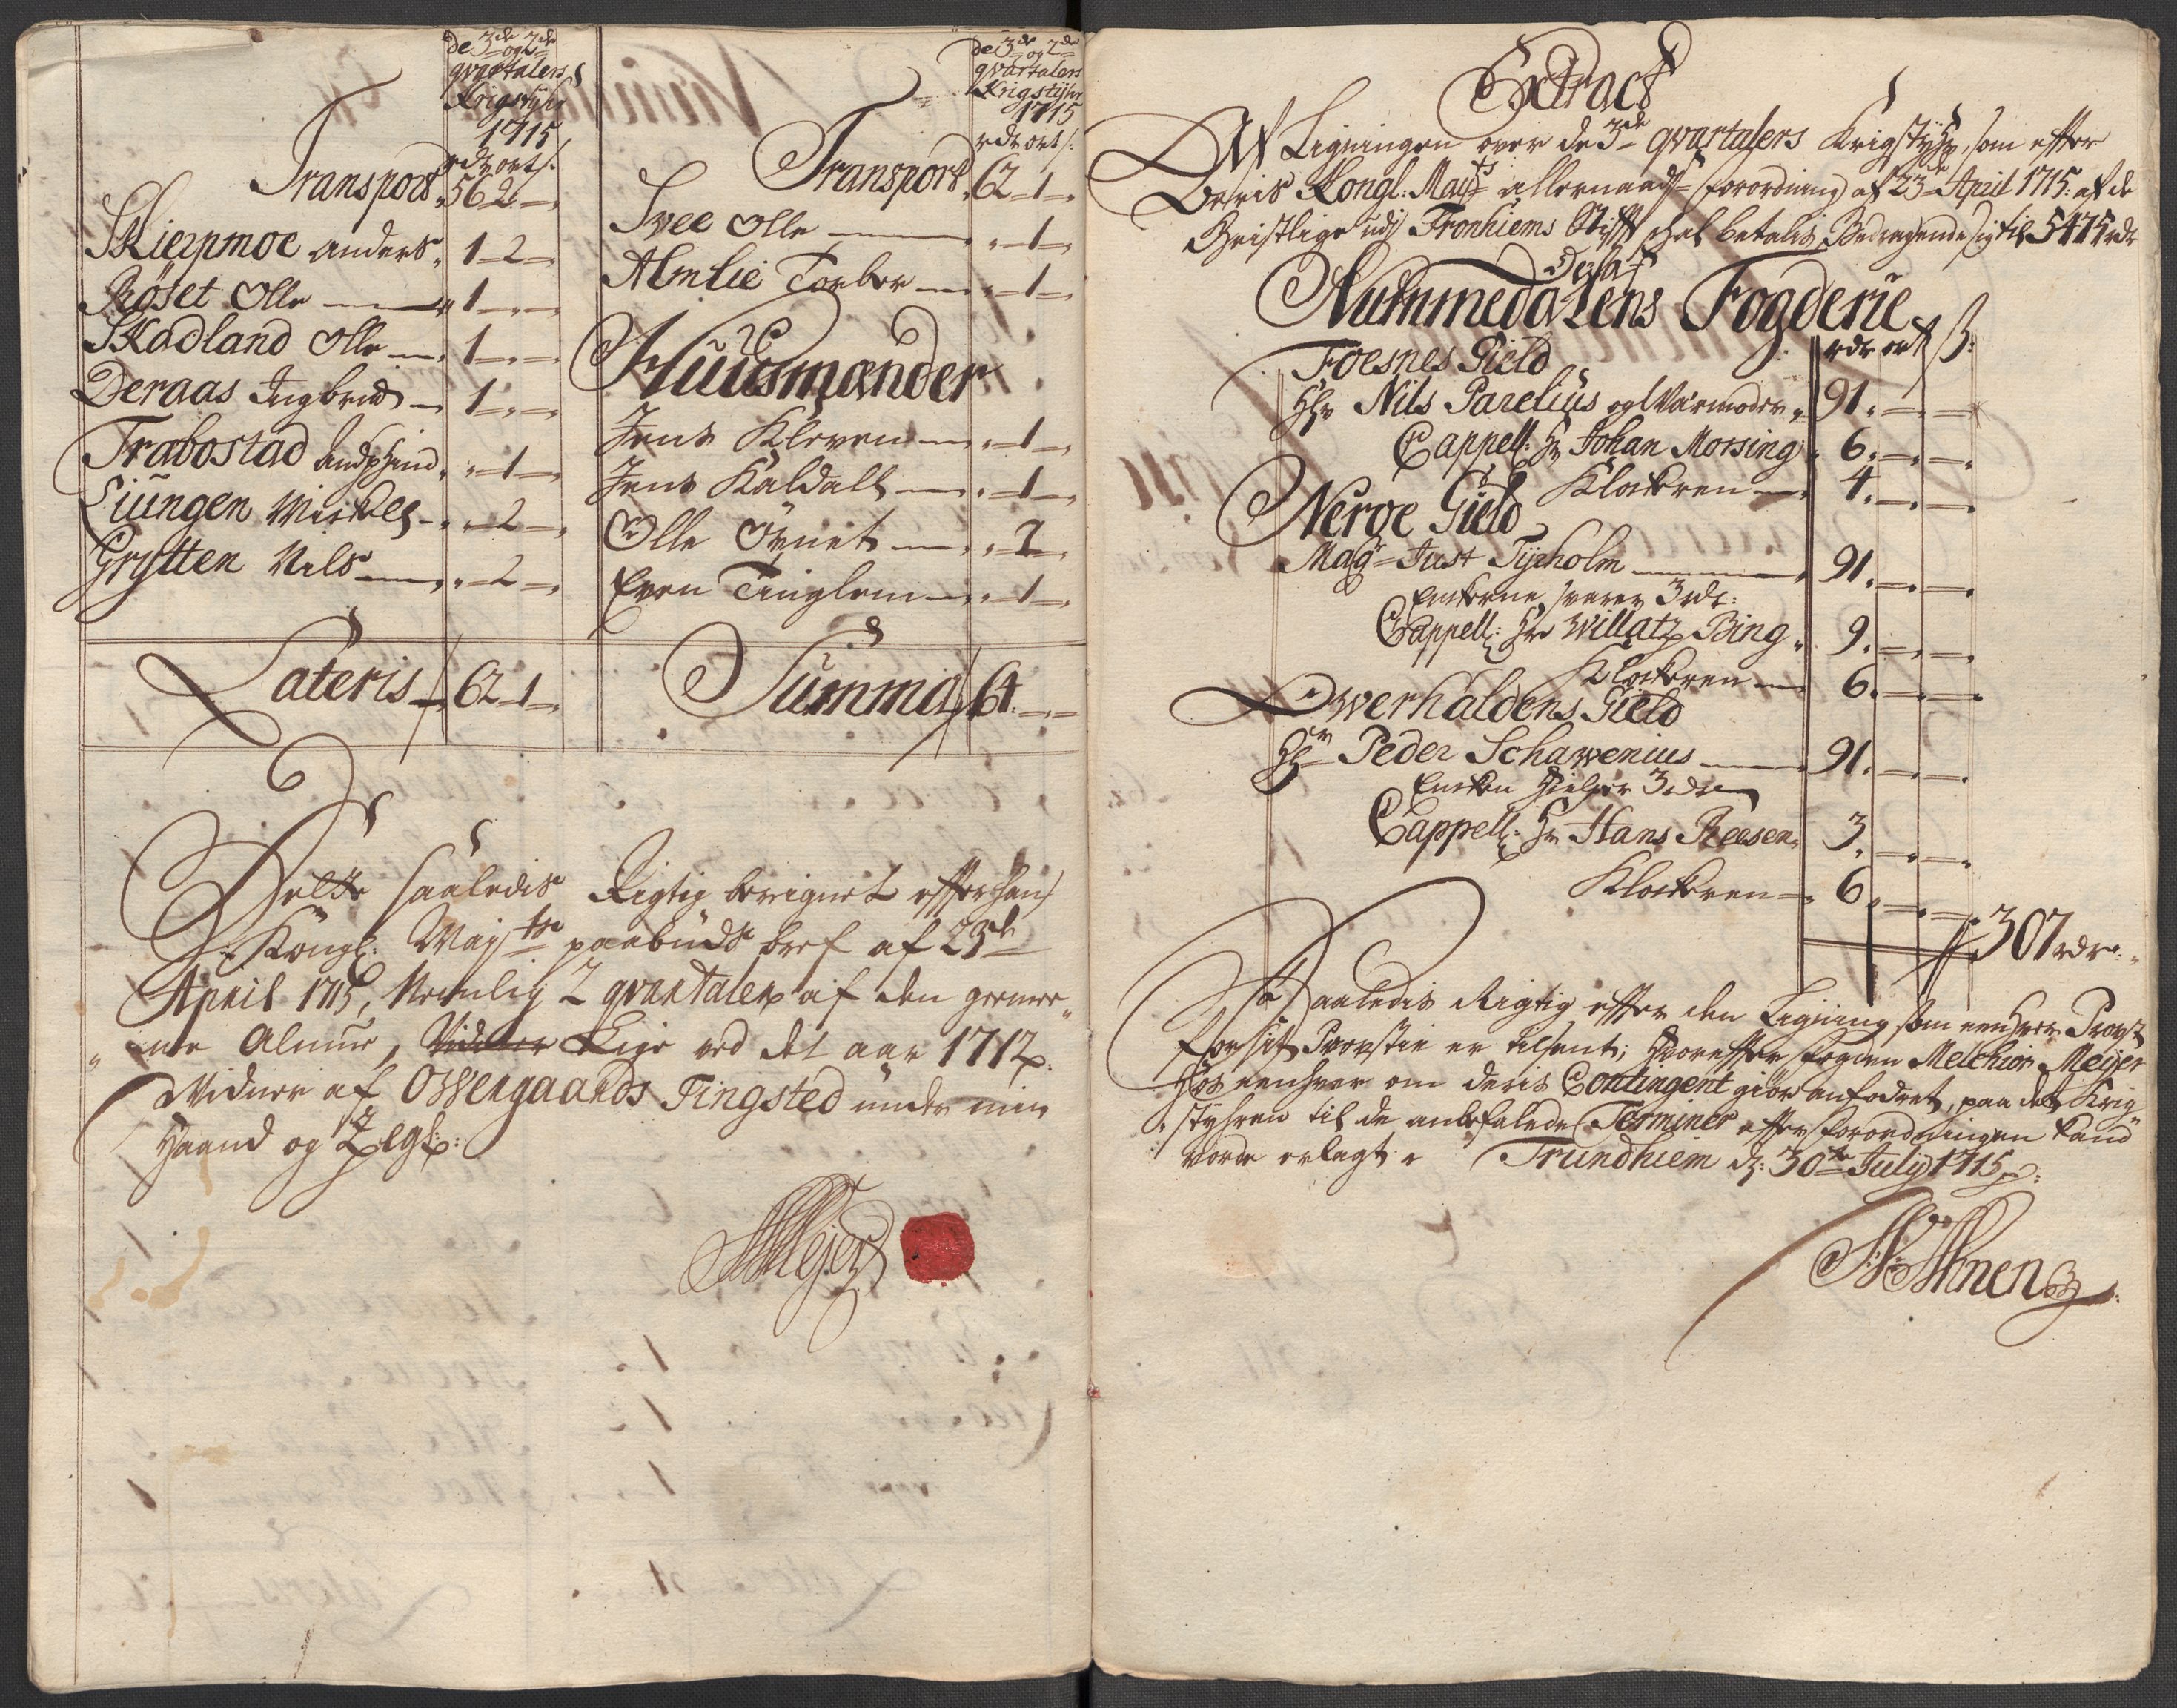 de 3de og 2de
qvartalers
Krigstyhr
1715
rdr ort s:
Transport 56 2 —
Skierpmoe Anders 1 — 2 —
Röset Olle — 1 — —
Skadland Olle — 1 — —
Deraas Ingbrid — 1 — —
Trabostad — 1 —
Liungen Mickel — 2 —
Grytten Nils — 2 —
Lateris 62 — 1 —
de 3de og 2de
qvartalers
Krigstyhr
1715
rdr ort s:
Transport 62 — 1 —
Svee Olle — 1 —
Almlie Torber — 1 —
Huusmænder
Jens Kleven — 1 —
Jens Kaldall — 1 —
Olle Öyniet — 2 —
Even Tinglem — 1 —
Summa 64 — —
Dette saaledis Rigtig berignet effter hans
Kongl: Mayts paabuds bref af 23de
April 1715, Nemlig 2 qvartaler af den gemee
ne Almue, Lige ved det aar 1712
Vidner af Owergaards Tingsted under min
Haand og Zegl:
MMejer
Extract
Af Ligningen over de 3de qvartalers Krigstyhr, som effter
Deris Kongl: Mayts allernaadste forordning af 23de April 1715: af de
Geistlige udj Tronhiems Stifft skal betalis, Bedragende sig til 5475 rdr
Deraf
Nummedalens Fogderie
rdr ort s:
Foesnes Gield
Hr Nils Parelius og Warmoder 91. — —
Cappell: Hr Johan Morsing 6. — —
Klockeren — 4. — —
Nerøe Gield
Magr Just Tyrholm — 91. — —
Enckerne svarer 3 rdr:
Cappell: Hr Willatz Bing 9. — —
Klockeren — 6. — —
Owerhaldens Gield
Hr Peder Schawenius — 91. — —
Encken hielper 3 rdr
Cappell: Hr Hans Reesen 3. — —
Klockeren — 6. — —
307 rdr:
Saaledis Rigtig effter den Ligning som eenhver Provst
for sit Provstie er tilsent; hvoreffter fogden Melchior Meijer
hos eenhver om deris Contingent giør anfodret, paa det Krig
styhren til de anbefalede Terminer effter forordningen kand
vorde erlagt. Trundhiem dz: 30te July 1715